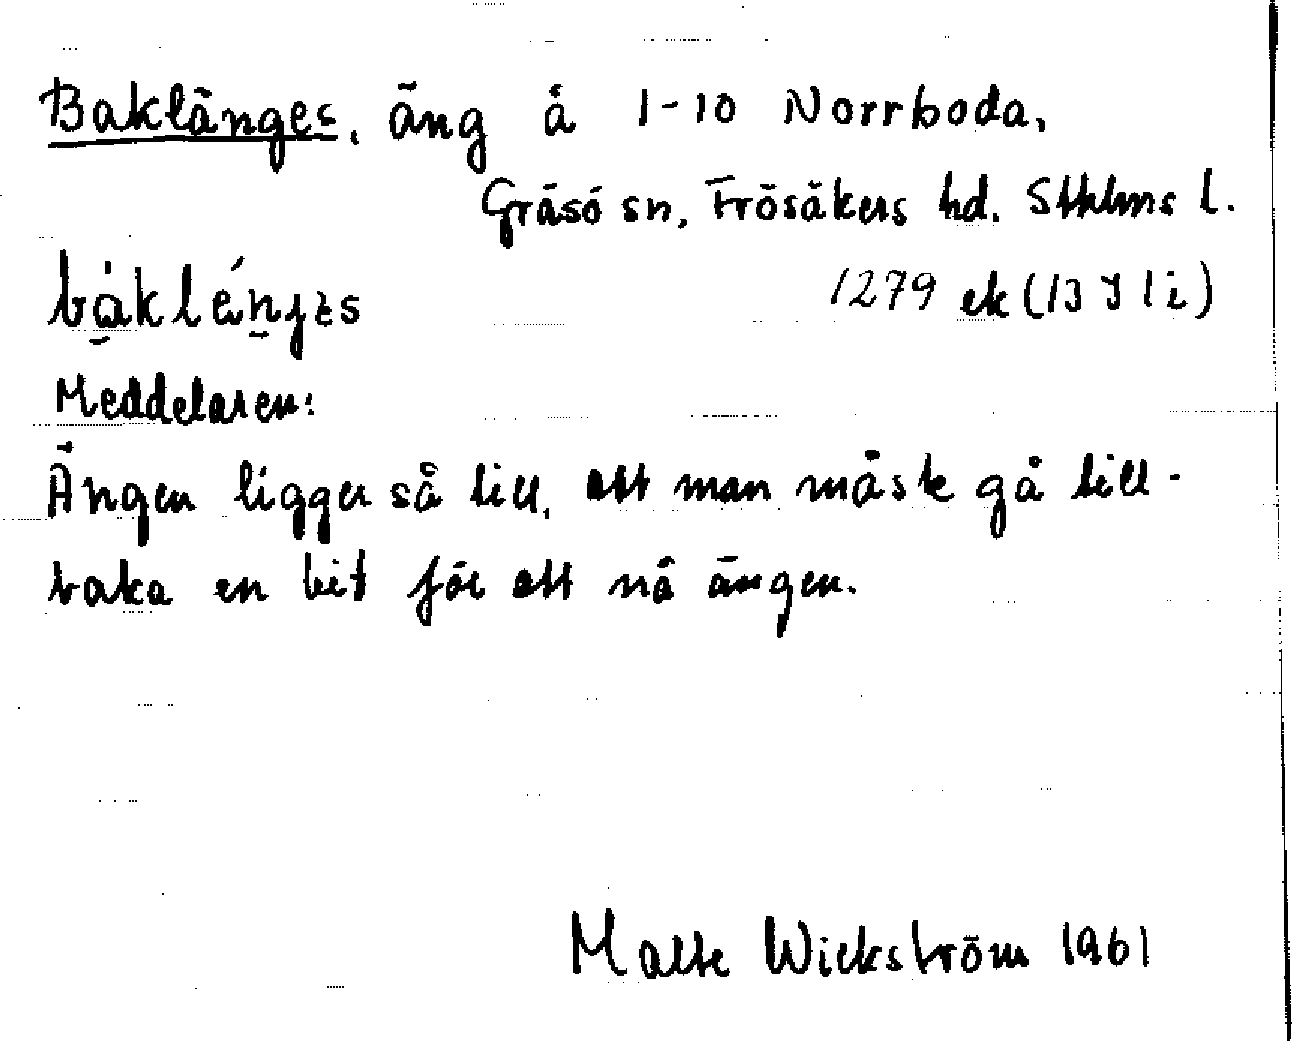 Baklänges, äng å 1-10 Norrboda,
Gräsö sn, Frösåkers hd. Sthlms l.
1279 ek (13 I 1 i)
Meddelaren:
Ängen ligger så till, att man måste gå till-
baka en bit för att nå ängen.
Malte Wickström 1961